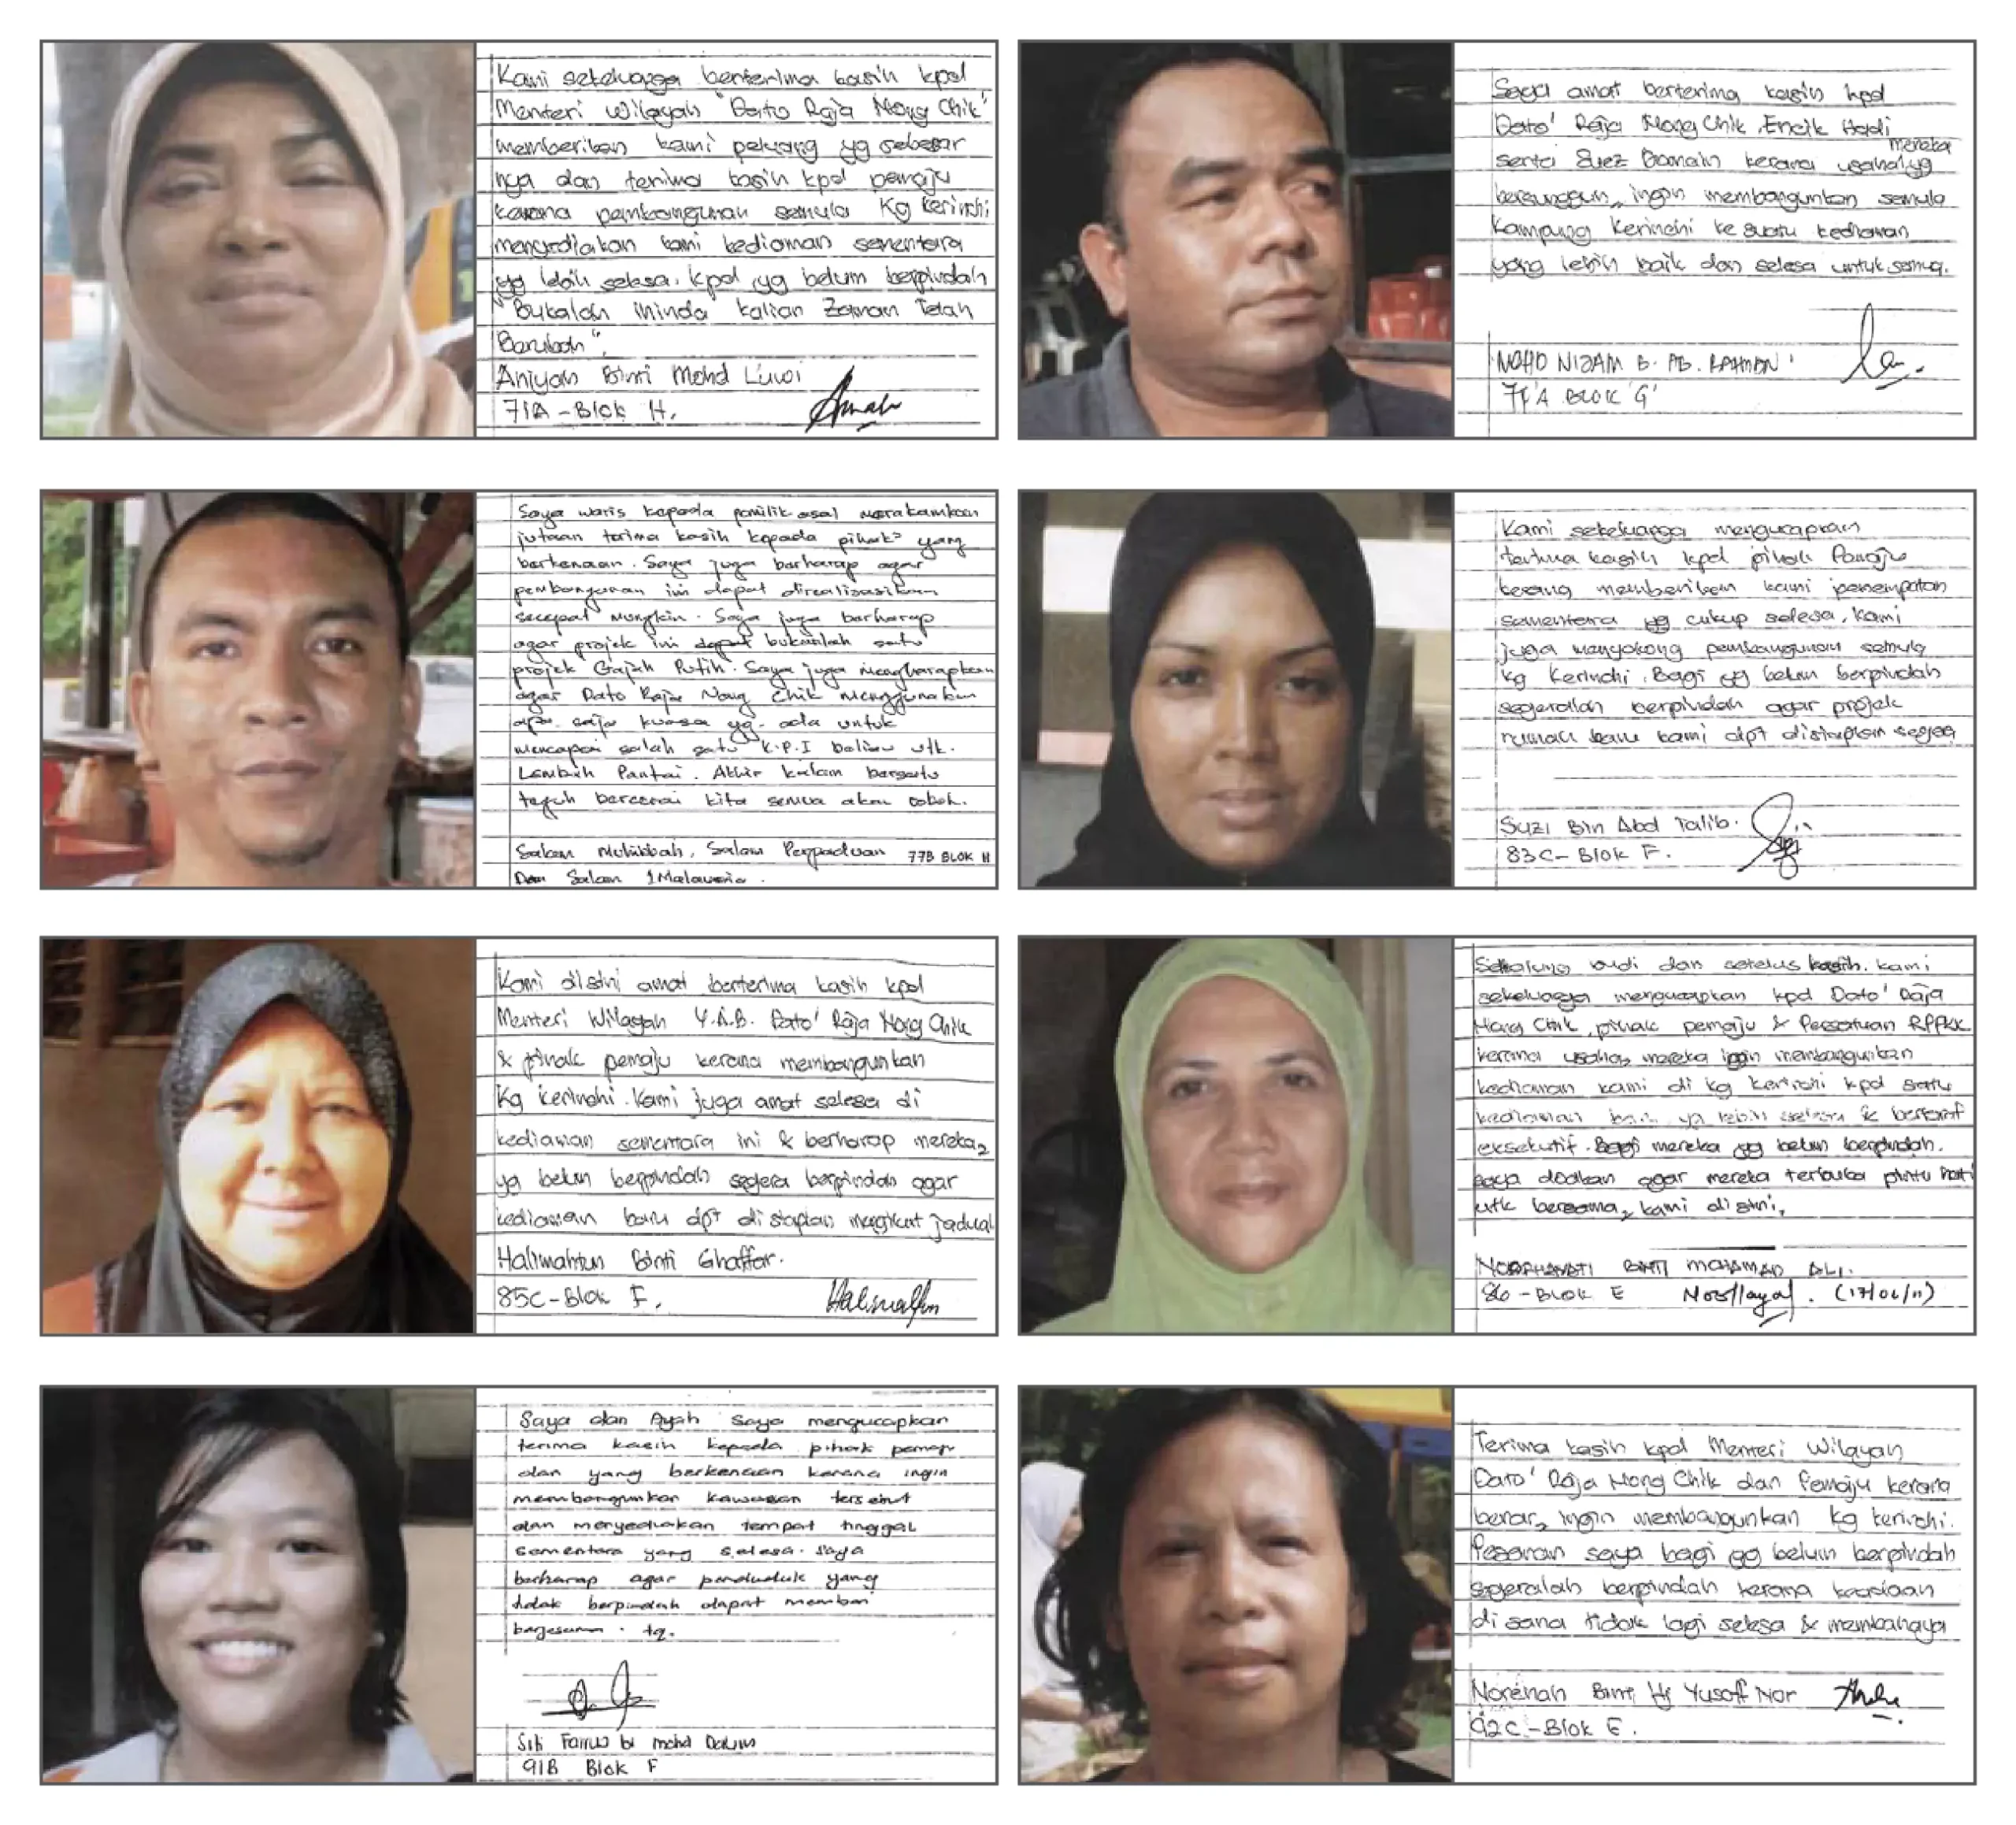 Kami sekeluarga berterima kasih kpd
Menteri Wilayah "Dato Raja Nong Chik"
memberikan kami peluang yg sebesar
nya dan terima kasih kpd pemaju
kerana pembangunan semula Kg Kerinchi
menyediakan kami kediaman sementara
yg lebih selesa. kpd yg belum berpindah
"Bukalah Minda kalian Zaman Telah
Berubah".
Aniyah Binti Mohd Luwi
71A - Blok H.
Saya amat berterima kasih kpd
Dato' Raja Nong Chik, Encik Hadi
serta Suez Domain kerana usaha mereka yg
bersungguh2 ingin membangunkan semula
Kampung Kerinchi ke suatu kediaman
yang lebih baik dan selesa untuk semua.
MOHD NIZAM B. AB. RAHMAN
77'A BLOK 'G'
Saya waris kepada pemilik asal merakamkan
jutaan terima kasih kepada pihak2 yang
berkenaan. Saya juga berharap agar
pembangunan ini dapat direalisasikan
secepat mungkin. Saya juga berharap
agar projek ini dapat bukanlah satu
projek Gajah Putih. Saya juga mengharapkan
agar Dato Raja Nong Chik menggunakan
apa saja kuasa yg. ada untuk
mencapai salah satu K.P.I beliau utk.
Lembah Pantai. Akhir kalam bersatu
teguh bercerai kita semua akan roboh.
Salam Muhibbah, Salam Perpaduan 77B BLOK H
Dan Salam 1Malaysia.
Kami sekeluarga mengucapkan
terima kasih kpd pihak Pemaju
kerana memberikan kami penempatan
sementara yg cukup selesa. Kami
juga menyokong pembangunan semula
Kg Kerinchi. Bagi yg belum berpindah
segeralah berpindah agar projek
rumah baru kami dpt disiapkan segera
Suzi Bin Abd Talib.
83C - Blok F.
Kami disini amat berterima kasih kpd
Menteri Wilayah Y.A.B. Dato' Raja Nong Chik
& pihak pemaju kerana membangunkan
Kg Kerinchi. Kami juga amat selesa di
kediaman sementara ini & berharap mereka2
yg belum berpindah segera berpindah agar
kediaman baru dpt disiapkan mengikut jadual
Halimahtun Binti Ghaffar.
85C - Blok F.
Sekalung budi dan setulus kasih. kami
sekeluarga mengucapkan kpd Dato' Raja
Nong Chik, pihak pemaju & Persatuan RPPKK
kerana usaha2 mereka ingin membangunkan
kediaman kami di kg kerinchi kpd satu
kediaman baru yg lebih selesa & bertaraf
eksekutif. Bagi mereka yg belum berpindah.
saya doakan agar mereka terbuka pintu hati
utk bersama2 kami disini.
NORHAYATI BINTI MOHAMAD ALI.
86 - BLOK E (17/06/11)
Saya dan Ayah saya mengucapkan
terima kasih kepada pihak pemaju
dan yang berkenaan kerana ingin
membangunkan kawasan tersebut
dan menyediakan tempat tinggal
sementara yang selesa. Saya
berharap agar penduduk yang
tidak berpindah dapat memberi
kerjasama. tq.
Siti bt mohd
91B Blok F
Terima kasih kpd Menteri Wilayah
Dato' Raja Nong Chik dan Pemaju kerana
benar2 ingin membangunkan Kg Kerinchi.
Pesanan saya bagi yg belum berpindah
segeralah berpindah kerana keadaan
di sana tidak lagi selesa & membahaya
Norenah Binti Hj Yusoff Nor
92C - Blok E.